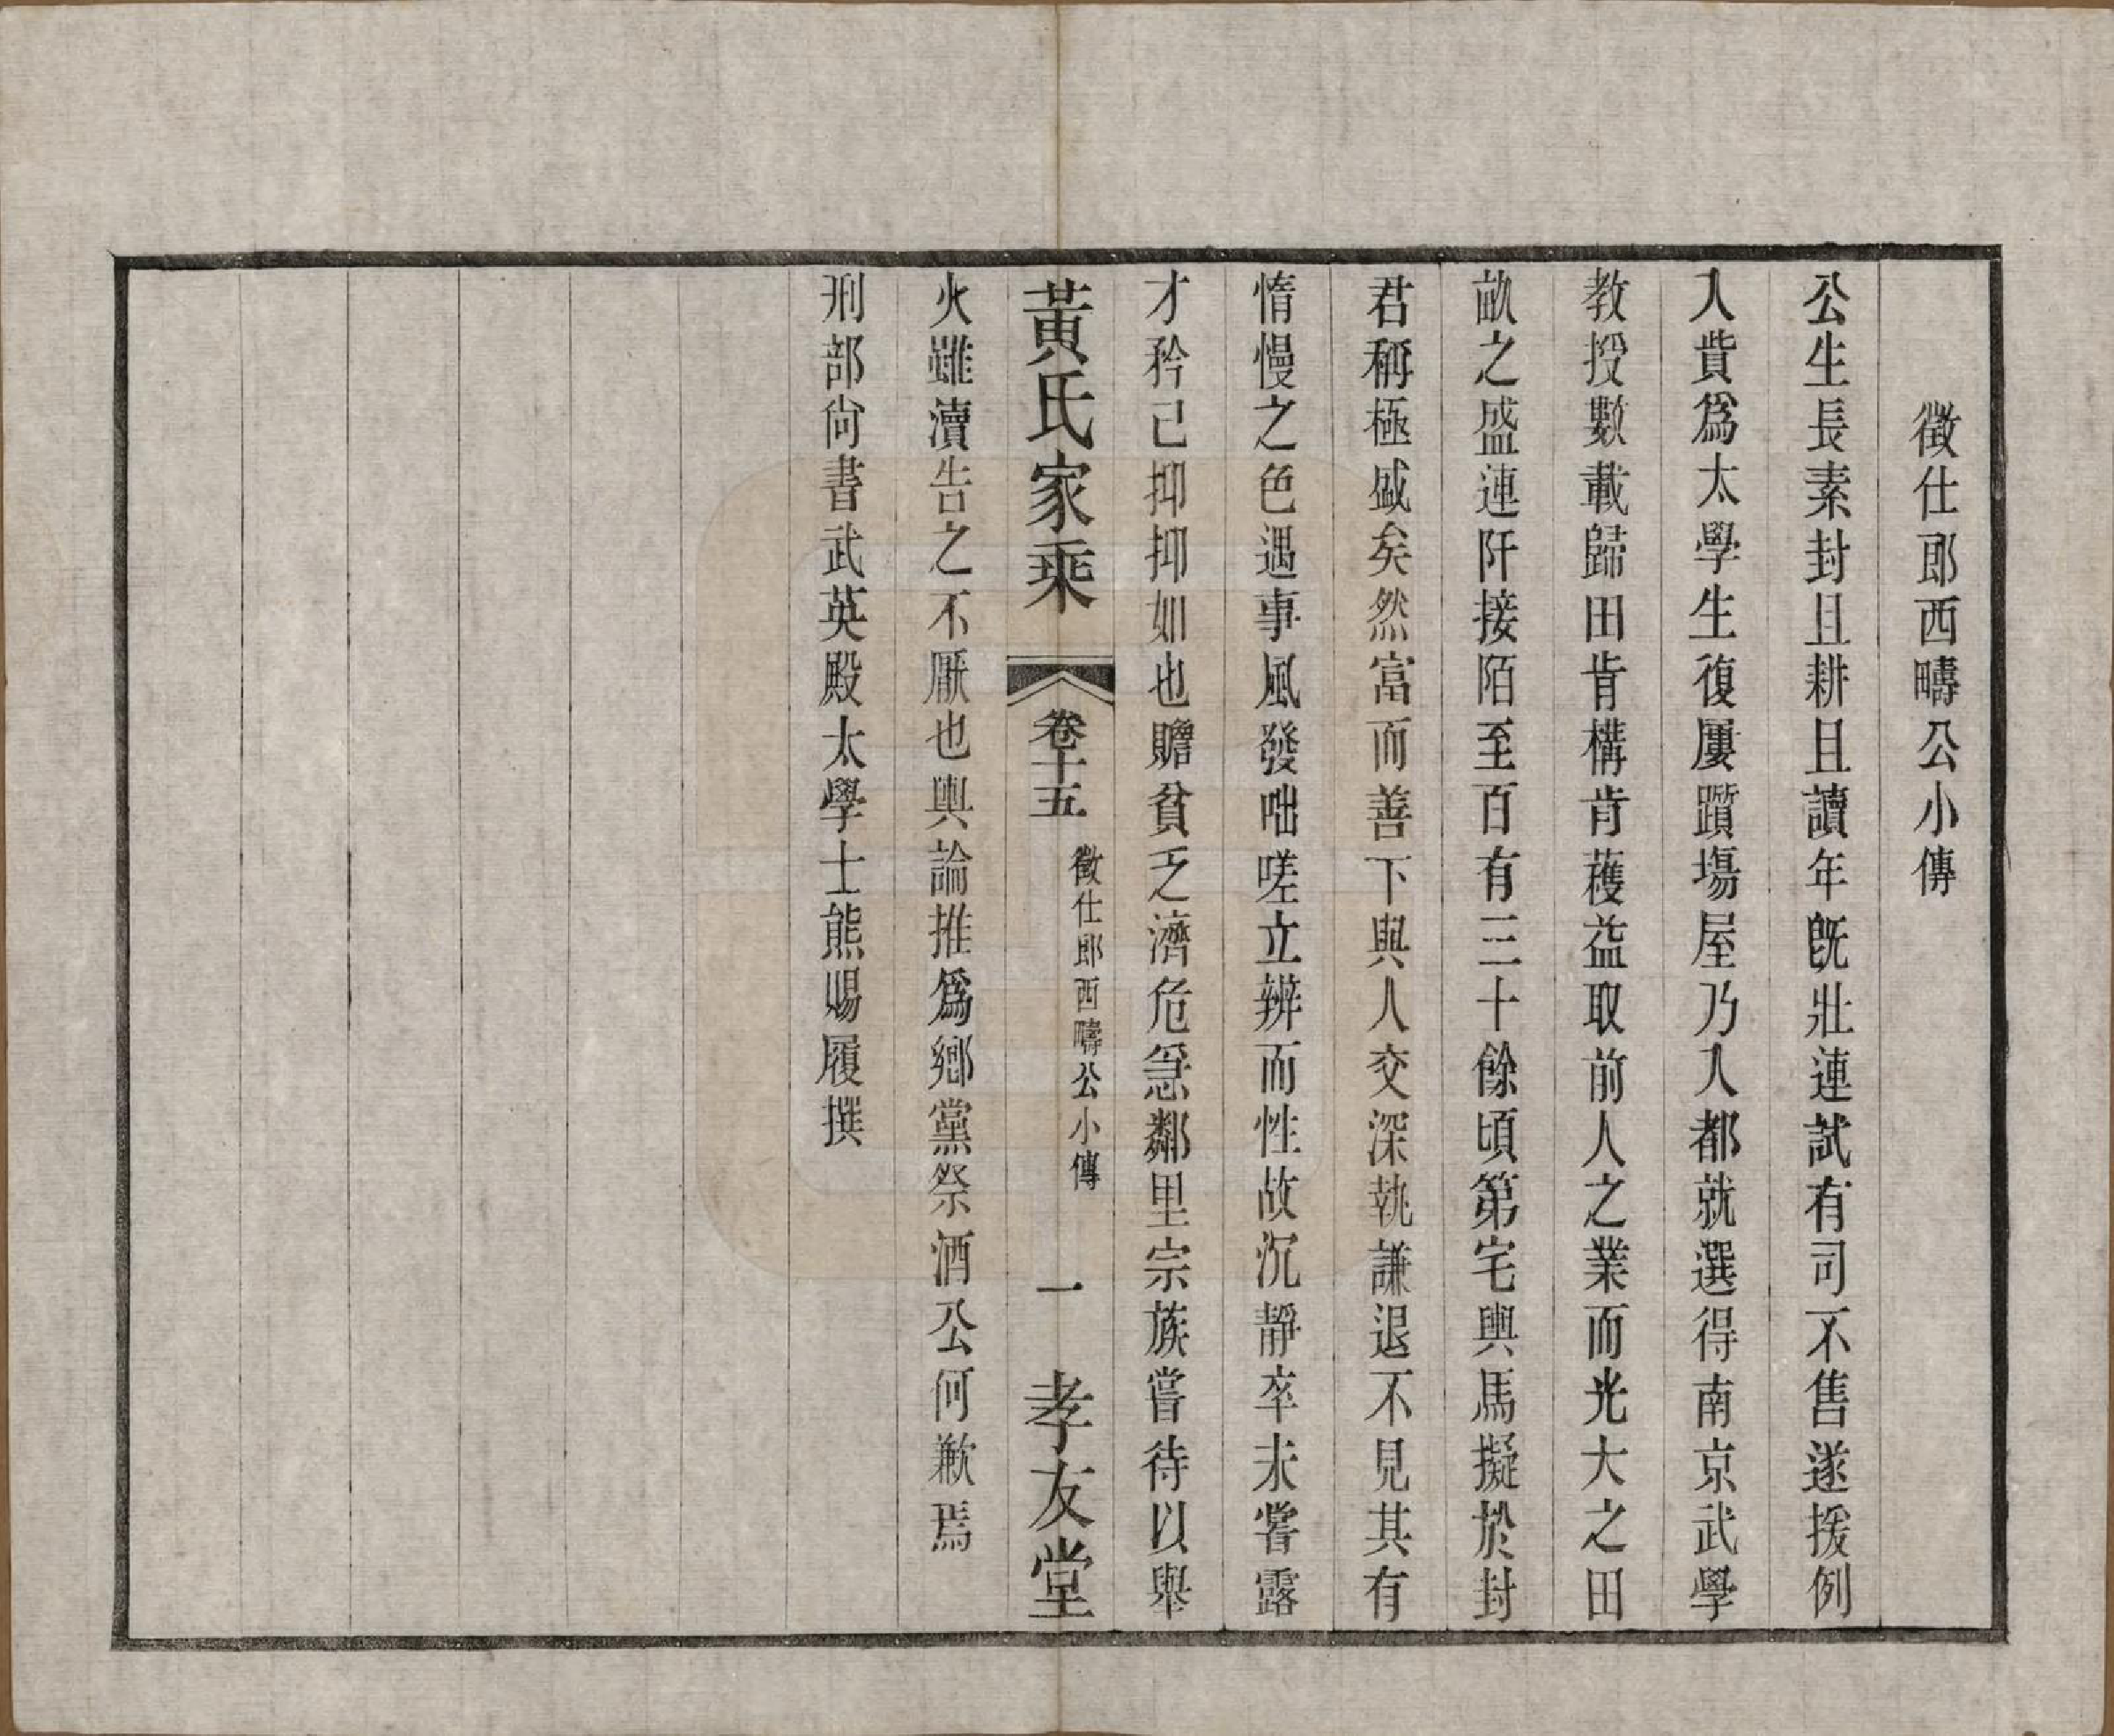 徵仕郎西疇公小傳
公生長素封且耕且讀年旣壯連試有司不售遂援例
入貲爲太學生復屢躓塲屋乃入都就選得南京武學
教授數載歸田肯構肯穫益取前人之業而光大之田
畝之盛連阡接陌至百有三十餘頃第宅輿馬擬於封
君稱極盛矣然富而善下與人交深執謙退不見其有
惰慢之色遇事風發咄嗟立辨而性故沉靜卒未嘗露
才矜己抑抑如也贍貧乏濟危急鄰里宗族嘗待以舉
黃氏家乘
卷十五
徵仕郎西疇公小傳
一
孝友堂
火雖瀆告之不厭也輿論推爲鄉黨祭酒公何歉焉
刑部尙書武英殿太學士熊賜履撰